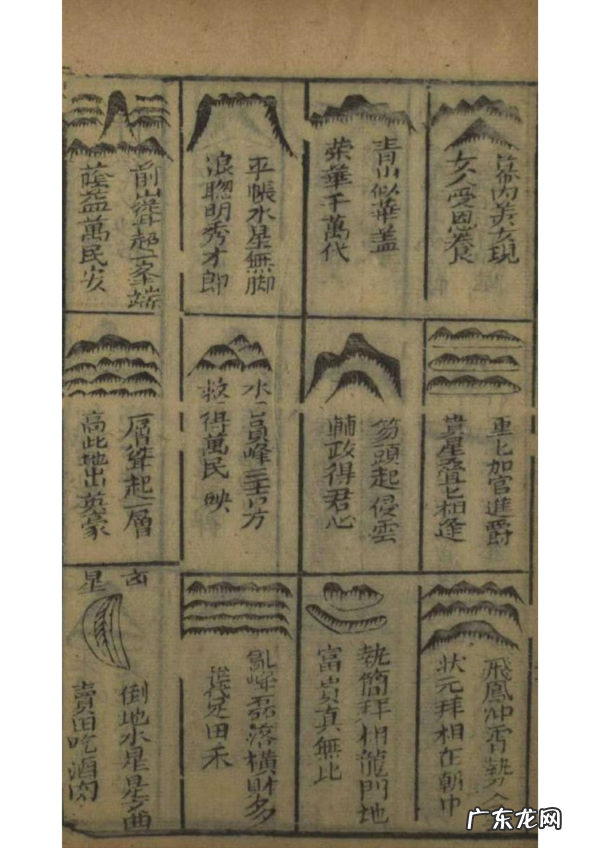 帳內美女現
女人受恩養
青山似華盖
榮華千萬代
平帳水星無脚
浪聦明秀才郎
前山聳起一峯端
蔭益萬民安
重七加官進爵
貴星叠七相逢
笏頭起侵雲
輔政得君心
水 員峰三吉方
救得萬民 映
一層聳起一層
高此地出英豪
飛鳳冲霄勢
狀元拜相在朝中
執簡拜相龍門地
富貴真無比
亂峰磊落橫財多
足田禾
星
倒地水星是多曲
賣田吃酒肉
广东龙网